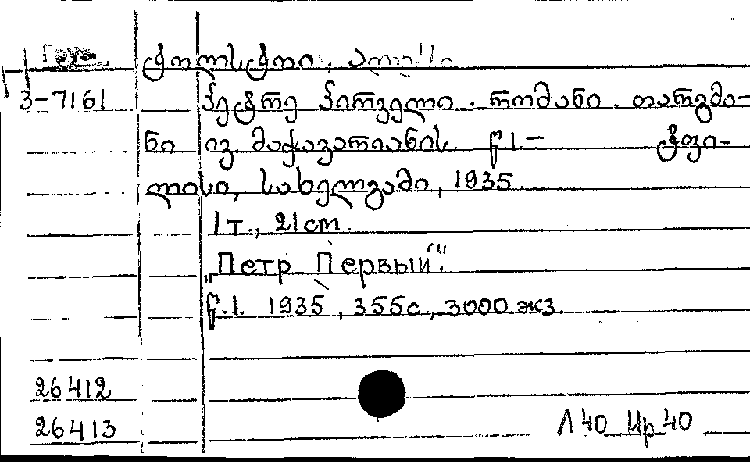 ტოლსტოი,
3-7161 პეტრე პირველი. რომანი. თარგმა-
ნი ივ. მაჭავარიანის. წ.1.- ტფი-
ლისი, სახელგამი, 1935
1т., 21 см.
"Петр Первый".
წ.1. 1935, 355с., 3000 экз.
26412
26413 Л40 Ир40